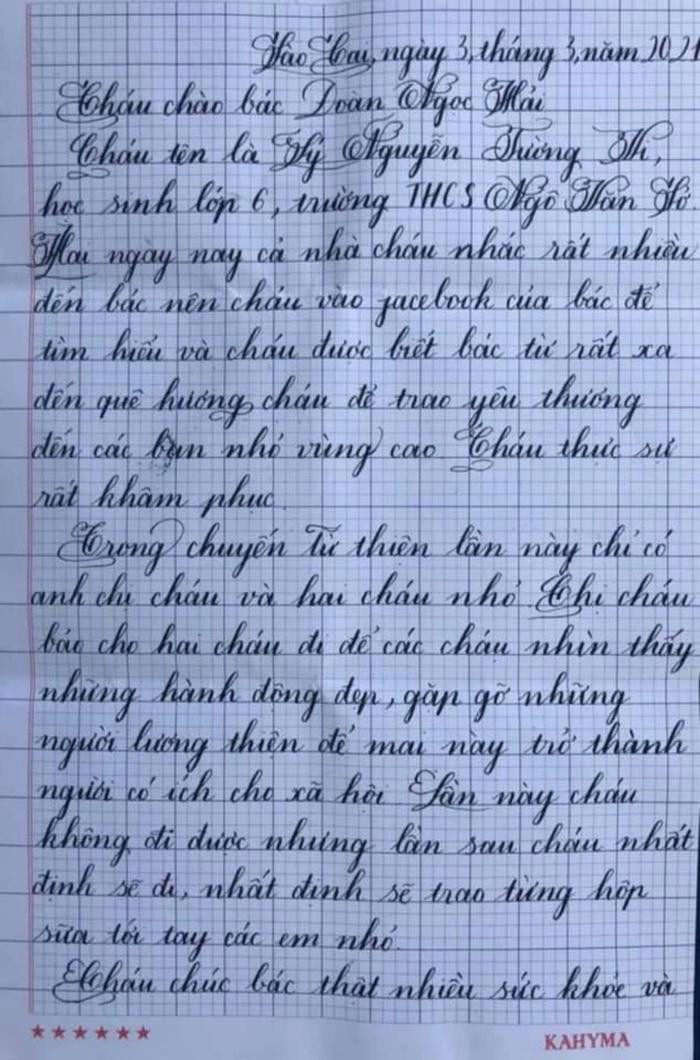 Lào Cai, ngày 3, tháng 3, năm 2021
Cháu chào bác Đoàn Ngọc Hải
Cháu tên là Lý Nguyễn Tường Vi,
học sinh lớp 6, trường THCS Ngô Văn Sở.
Hai ngày nay cả nhà cháu nhắc rất nhiều
đến bác nên cháu vào facebook của bác để
tìm hiểu và cháu được biết bác từ rất xa
đến quê hương cháu để trao yêu thương
đến các bạn nhỏ vùng cao. Cháu thực sự
rất khâm phục.
Trong chuyến từ thiện lần này chỉ có
anh chị cháu và hai cháu nhỏ. Chị cháu
bảo cho hai cháu đi để các cháu nhìn thấy
những hành động đẹp, gặp gỡ những
người lương thiện để mai này trở thành
người có ích cho xã hội. Lần này cháu
không đi được nhưng lần sau cháu nhất
định sẽ đi, nhất định sẽ trao từng hộp
sữa tới tay các em nhỏ.
Cháu chúc bác thật nhiều sức khỏe và
KAHYMA